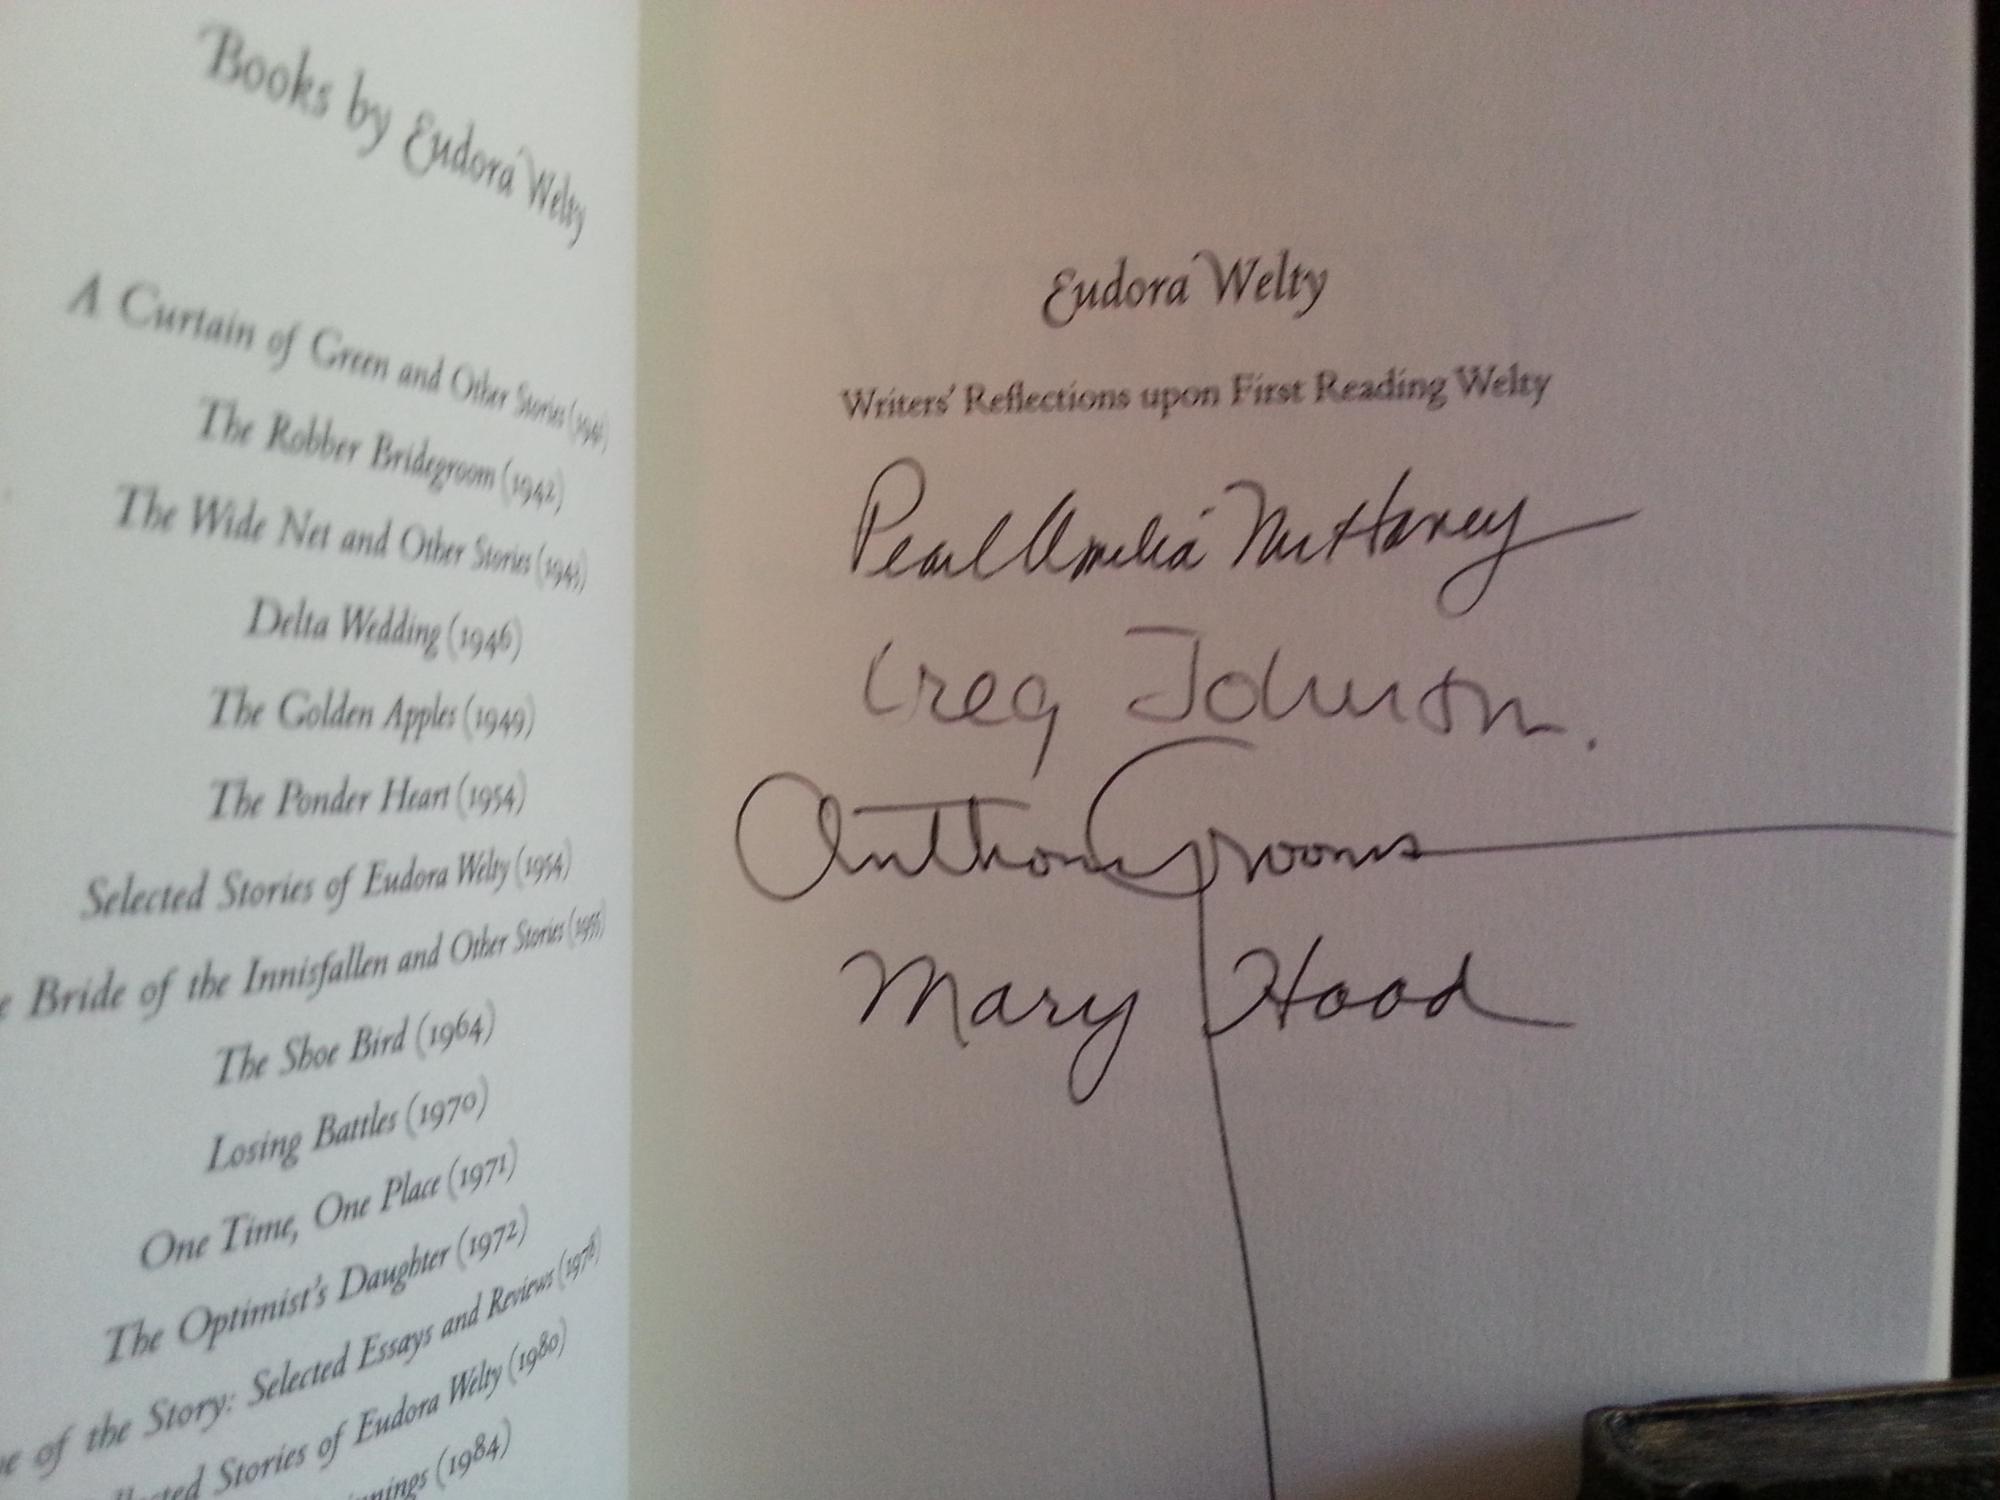 Books by Eudora Welty
A Curtain of Green and Other Stories (1941)
The Robber Bridegroom (1942)
The Wide Net and Other Stories (1943)
Delta Wedding (1946)
The Golden Apples (1949)
The Ponder Heart (1954)
Selected Stories of Eudora Welty (1954)
Bride of the Innisfallen and Other Stories (1955)
The Shoe Bird (1964)
Losing Battles (1970)
One Time, One Place (1971)
The Optimist's Daughter (1972)
of the Story: Selected Essays and Reviews (1978)
Stories of Eudora Welty (1980)
(1984)
Eudora Welty
Writers' Reflections upon First Reading Welty
Pearl Amelia McHaney
Greg Johnson.
Anthony Grooms
Mary Hood